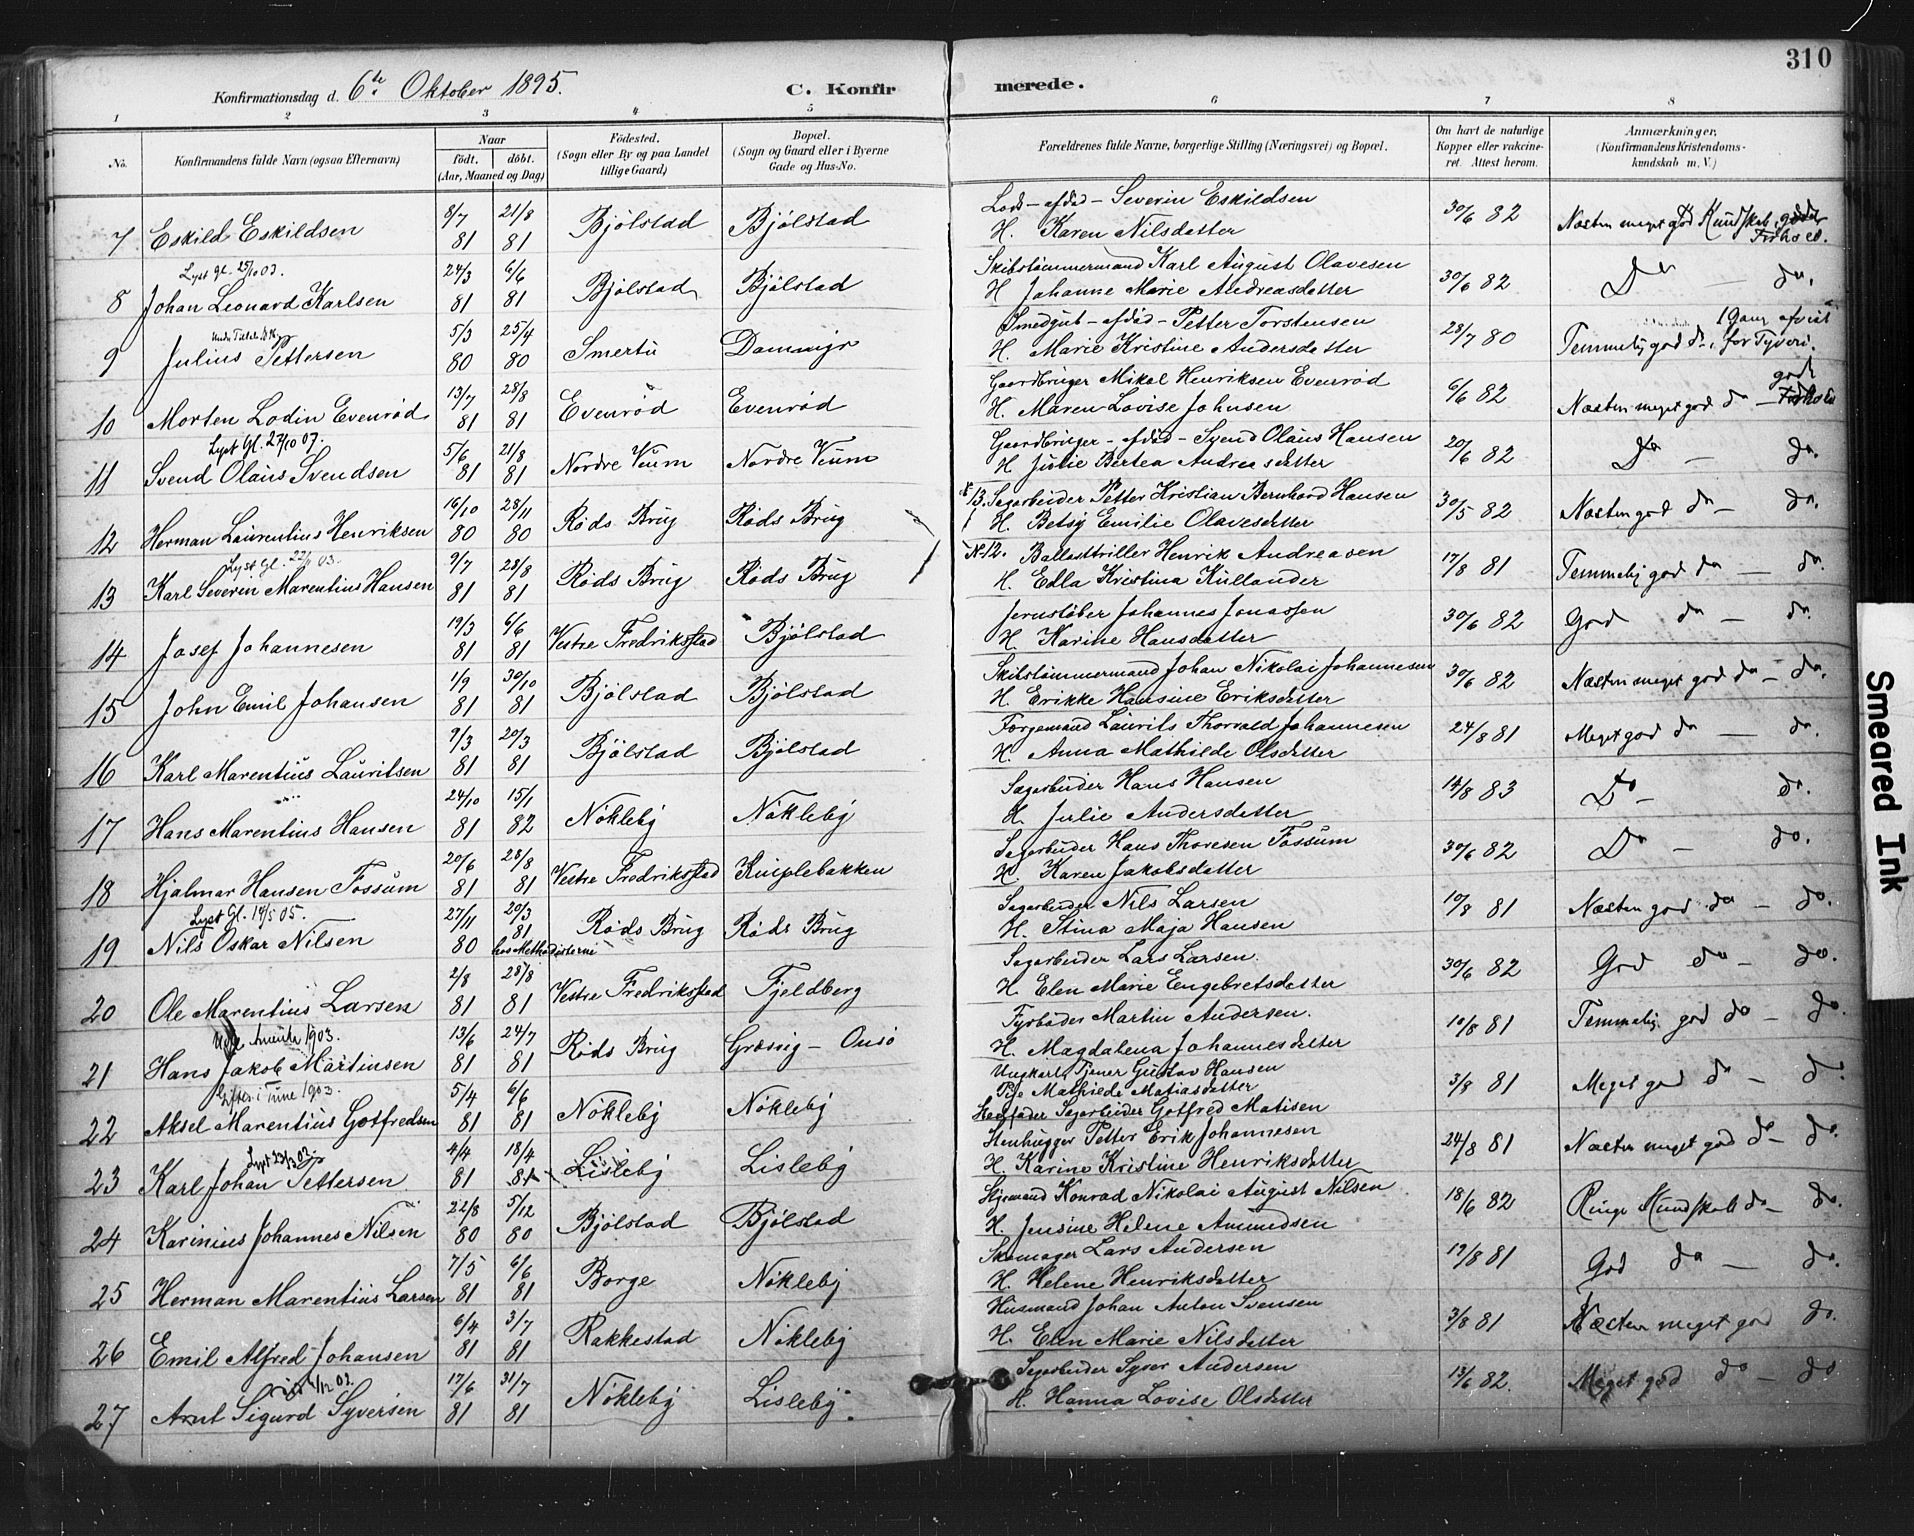 310
Konfirmationsdag d. 6te Oktober 1895. C. Konfirmerede.
1 2 3 4 5 6 7 8
No. Konfirmandens fulde Navn (ogsaa Efternavn) Naar født. døbt. (Aar, Maaned og Dag) Fødested. (Sogn eller By og paa Landet tillige Gaard.) Bopæl. (Sogn og Gaard eller i Byerne Gade og Hus-No. Forældrenes fulde Navne, borgerlige Stilling (Næringsvei) og Bopæl. Om havt de naturlige Kopper eller vaccineret. Attest herom. Anmærkninger, (Konfirmandens Kristendomskundskab m. V.)
7 Eskild Eskildsen 8/7 81 21/8 81 Bjölstad Bjölstad Lods - afdöd - Severin Eskildsen H. Karen Nilsdatter 30/6 82 Næsten meget god Kundskab, godt Forhold.
Lyst Gl. 25/10 03.
8 Johan Leonard Karlsen 24/3 81 6/6 81 Bjölstad Bjölstad Skibstömmermand Karl August Olavesen H. Johanne Marie Andreasdatter 30/6 82 Do do.
9 Julius Pettersen 5/3 80 25/4 80 Smertu Dammyr Smedgut - afdöd - Petter Torstensen H. Marie Kristine Andersdatter 28/7 80 Temmelig god do, 1 Gang afvist for Tyveri.
10 Morten Lodin Evenröd 13/7 81 28/8 81 Evenröd Evenröd Gaardbruger Mikal Henriksen Evenröd H. Maren Lovise Johnsen 6/6 82 Næsten meget god do - godt Forhold
Lyst Gl. 27/10 07.
11 Svend Olaus Svendsen 5/6 81 21/8 81 Nordre Veum Nordre Veum Gaardbruger - afdöd - Svend Olaus Hansen H. Julie Bertea Andreasdatter 20/6 82 Do - do.
12 Herman Laurentius Henriksen 16/10 80 28/11 80 Röds Brug Röds Brug 13. Sagarbeider Petter Kristian Bernhard Hansen H. Betsy Emilie Olavesdatter 30/5 82 Næsten god do - do.
Lyst Gl. 22/11 03.
13 Karl Severin Marentius Hansen 9/7 81 28/8 81 Röds Brug Röds Brug No 12. Ballasttriller Henrik Andreasen H. Edla Kristina Kullander 17/8 81 Temmelig god do - do.
14 Josef Johannesen 19/3 81 6/6 81 Vestre Fredriksstad Bjölstad Jernstöber Johannes Jonassen H. Karine Hansdatter 30/6 82 God do - do.
15 John Emil Johansen 1/9 81 30/10 81 Bjölstad Bjölstad Skibstömmermand Johan Nikolai Johannesen H. Erikke Hansine Eriksdatter 30/6 82 Næsten meget god do - do.
16 Karl Marentius Lauritsen 9/3 81 20/3 81 Bjölstad Bjölstad Forgemand Laurits Thorvald Johannesen H. Anna Mathilde Olsdatter 24/8 81 Meget god do - do.
17 Hans Marentius Hansen 24/10 81 15/1 82 Nökleby Nökleby Sagarbeider Hans Hansen H. Julie Andersdatter 14/8 83 Do - do.
18 Hjalmar Hansen Fossum 20/6 81 28/8 81 Vestre Fredriksstad Kniplebakken Sagarbeider Hans Thoresen Fossum H. Karen Jakobsdatter 30/6 82 Do - do.
Lyst Gl. 14/5 05.
19 Nils Oskar Nilsen 27/11 80 20/3 81 hos Methodisterne Röds Brug Röds Brug Sagarbeider Nils Larsen H. Stina Maja Hansen 10/8 81 Næsten god do - do.
20 Ole Marentius Larsen 2/8 81 28/8 81 Vestre Fredriksstad Fjeldberg Sagarbeider Lars Larsen. H. Elen Marie Engebretsdatter 30/6 82 God do - do.
1903.
21 Hans Jakob Martinsen 13/6 81 24/7 81 Röds Brug Græsvig - Onsö Fyrböder Martin Andersen. H. Magdalena Johannesdatter 10/8 81 Temmelig god do - do.
Giftes i Tune 1903.
22 Aksel Marentius Gotfredsen 5/4 81 6/6 81 Nökleby Nökleby Ungkarl, Tjener Gustav Hansen Pige Mathilde Matiasdatter Stedfader Sagarbeider Gotfred Matisen 3/8 81 Meget god do - do
Lyst 23/3 02.
23 Karl Johan Pettersen 4/4 81 18/4 81 Lisleby Lisleby Stenhugger Petter Erik Johannesen H. Karine Kristine Henriksdatter 24/8 81 Næsten meget god do - do.
24 Karinius Johannes Nilsen 22/8 80 5/12 80 Bjölstad Bjölstad Styrmand Konrad Nikolai August Nilsen H. Jensine Helene Amundsen 18/6 82 Ringe Kundskab do - do.
25 Herman Marentius Larsen 7/5 81 6/6 81 Borge Nökleby Skomager Lars Andersen H. Helene Henriksdatter 19/8 81 God do - do.
26 Emil Alfred Johansen 6/4 81 3/7 81 Rakkestad Nökleby Husmand Johan Anton Svensen H. Elen Marie Nilsdatter 3/8 81 Næsten meget god do.
27 Arnt Sigurd Syversen 17/6 81 31/7 81 Nökleby Lisleby Sagarbeider Syver Andersen H. Hanna Lovise Olsdatter 13/6 82. Meget god do - do
Smeared Ink